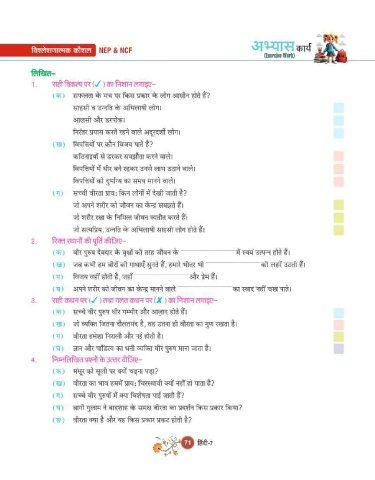 विश्लेशणात्मक कौशल NEP & NCF
अभ्यास कार्य
(Exercise Work)
लिखित–
1. सही विकल्प पर (✓) का निशान लगाइए–
(क) सफलता के मंच पर किस प्रकार के लोग आसीन होते हैं?
साहसी व उन्नति के अभिलाषी लोग।
आलसी और डरपोक।
निरंतर प्रयास करते रहने वाले अदूरदर्शी लोग।
(ख) विपत्तियों पर कौन विजय पाते हैं?
कठिनाइयों से डरकर समझौता करने वाले।
विपत्तियों में धीर बने रहकर उनसे लाभ उठाने वाले।
विपत्तियों को दुर्भाग्य का समय मानने वाले।
(ग) सच्ची वीरता प्रायः किन लोगों में देखी जाती है?
जो अपने शरीर को जीवन का केन्द्र समझते हैं।
जो शरीर रक्षा के निमित्त जीवन व्यतीत करते हैं।
जो सत्यप्रिय, उन्नति के अभिलाषी साहसी लोग होते हैं।
2. रिक्त स्थानों की पूर्ति कीजिए–
(क) वीर पुरुष देवदार के वृक्षों की तरह जीवन के में स्वयं उत्पन्न होते हैं।
(ख) जब कभी हम वीरों की गाथाएँ सुनते हैं, हमारे भीतर भी की लहरें उठती हैं।
(ग) विजय वहीं होती है, जहाँ और प्रेम हैं।
(घ) अपने शरीर को जीवन का केन्द्र मानने वाले का स्वाद नहीं चख पाते।
3. सही कथन पर (✓) तथा गलत कथन पर (✗) का निशान लगाइए–
(क) सच्चे वीर पुरुष धीर गम्भीर और आज़ाद होते हैं।
(ख) जो व्यक्ति जितना दौलतमंद है, वह उतना ही वीरता का गुण रखता है।
(ग) वीरता हमेशा निराली और नई होती है।
(घ) ज्ञान और पांडित्य का धनी व्यक्ति वीर पुरुष माना जाता है।
4. निम्नलिखित प्रश्नों के उत्तर दीजिए–
(क) मंसूर को सूली पर क्यों चढ़ना पड़ा?
(ख) वीरता का भाव हममें प्रायः चिरस्थायी क्यों नहीं हो पाता है?
(ग) सच्चे वीर पुरुषों में क्या विशेषता पाई जाती हैं?
(घ) बागी गुलाम ने बादशाह के समक्ष वीरता का प्रदर्शन किस प्रकार किया?
(ङ) वीरता क्या है और वह किस प्रकार प्रकट होती है?
71 हिंदी-7